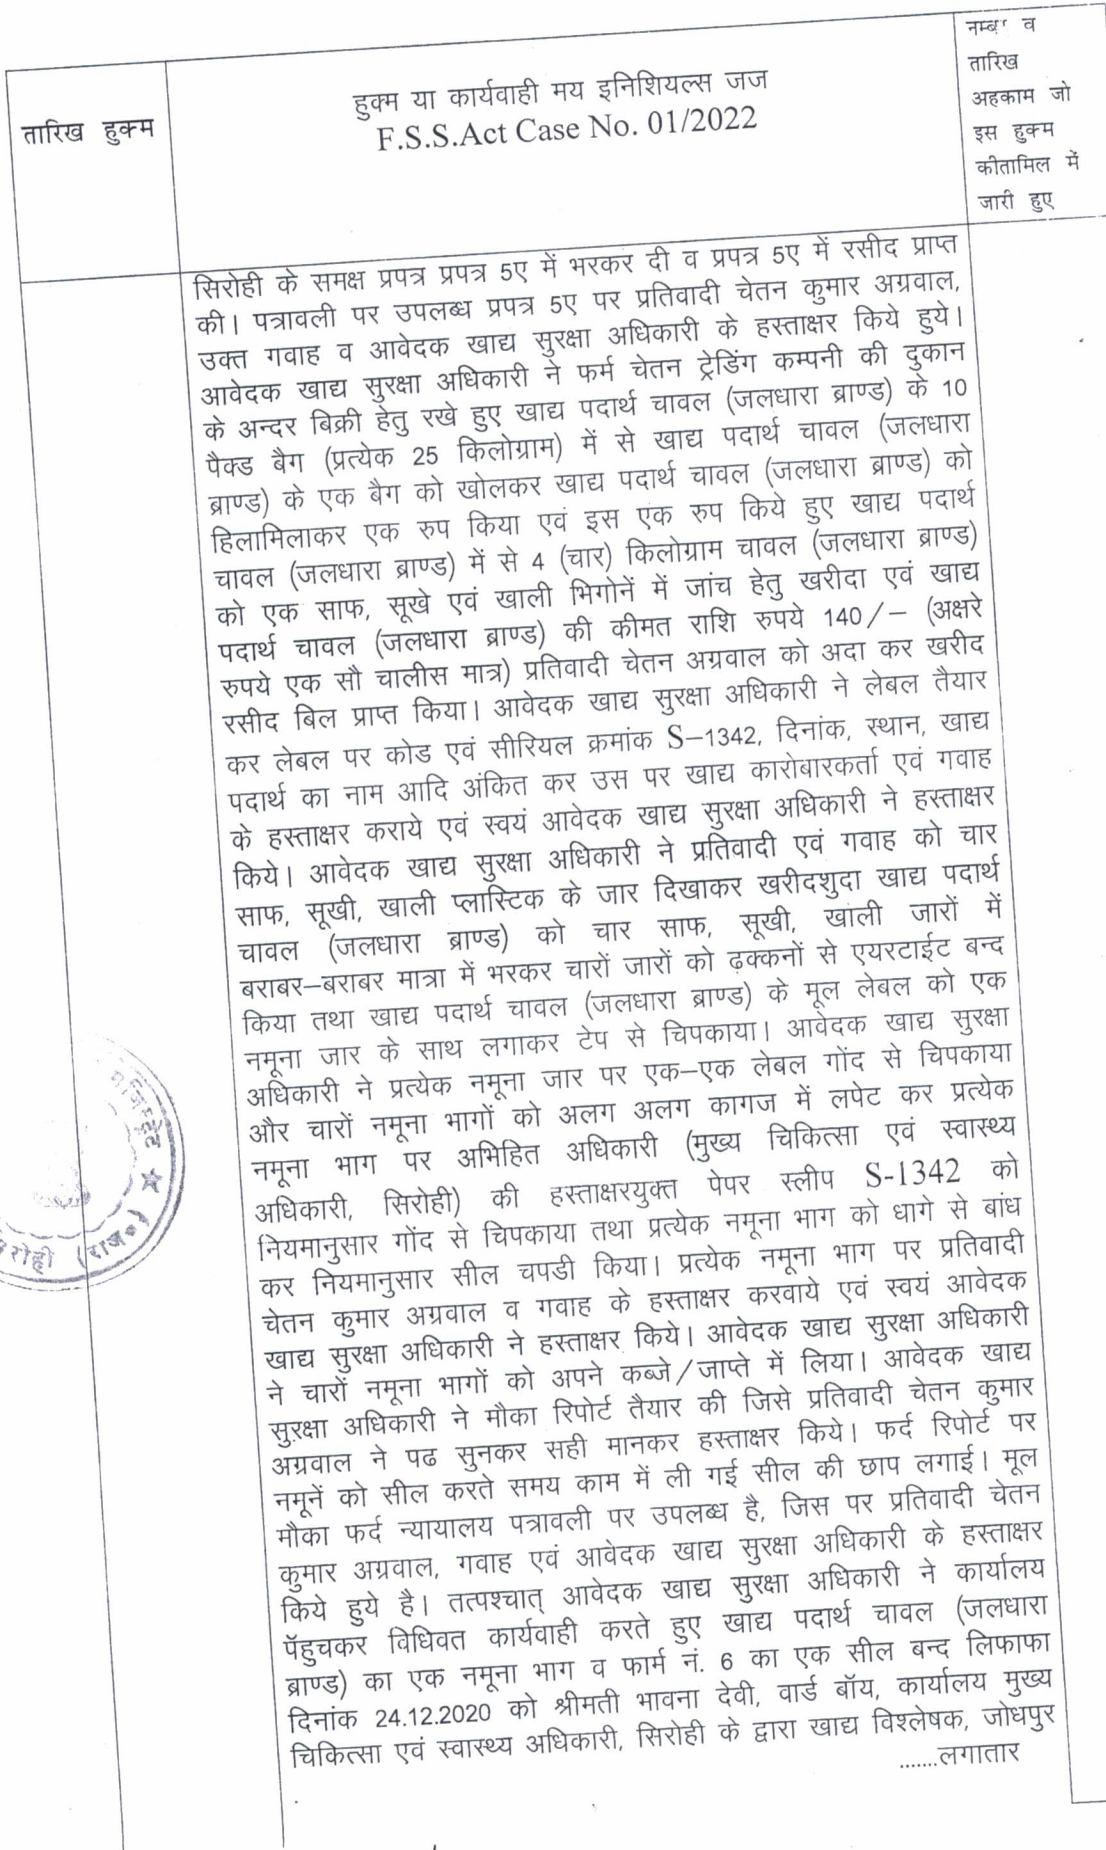 तारिख हुक्म
हुक्म या कार्यवाही मय इनिशियल्स जज
F.S.S.Act Case No. 01/2022
नम्बर व
तारिख
अहकाम जो
इस हुक्म
कीतामिल में
जारी हुए
सिरोही के समक्ष प्रपत्र प्रपत्र 5ए में भरकर दी व प्रपत्र 5ए में रसीद प्राप्त
की। पत्रावली पर उपलब्ध प्रपत्र 5ए पर प्रतिवादी चेतन कुमार अग्रवाल,
उक्त गवाह व आवेदक खाद्य सुरक्षा अधिकारी के हस्ताक्षर किये हुये।
आवेदक खाद्य सुरक्षा अधिकारी ने फर्म चेतन ट्रेडिंग कम्पनी की दुकान
के अन्दर बिक्री हेतु रखे हुए खाद्य पदार्थ चावल (जलधारा ब्राण्ड) के 10
पैक्ड बैग (प्रत्येक 25 किलोग्राम) में से खाद्य पदार्थ चावल (जलधारा
ब्राण्ड) के एक बैग को खोलकर खाद्य पदार्थ चावल (जलधारा ब्राण्ड) को
हिलामिलाकर एक रुप किया एवं इस एक रुप किये हुए खाद्य पदार्थ
चावल (जलधारा ब्राण्ड) में से 4 (चार) किलोग्राम चावल (जलधारा ब्राण्ड)
को एक साफ, सूखे एवं खाली भिगोनें में जांच हेतु खरीदा एवं खाद्य
पदार्थ चावल (जलधारा ब्राण्ड) की कीमत राशि रुपये 140/– (अक्षरे
रुपये एक सौ चालीस मात्र) प्रतिवादी चेतन अग्रवाल को अदा कर खरीद
रसीद बिल प्राप्त किया। आवेदक खाद्य सुरक्षा अधिकारी ने लेबल तैयार
कर लेबल पर कोड एवं सीरियल क्रमांक S–1342, दिनांक, स्थान, खाद्य
पदार्थ का नाम आदि अंकित कर उस पर खाद्य कारोबारकर्ता एवं गवाह
के हस्ताक्षर कराये एवं स्वयं आवेदक खाद्य सुरक्षा अधिकारी ने हस्ताक्षर
किये। आवेदक खाद्य सुरक्षा अधिकारी ने प्रतिवादी एवं गवाह को चार
साफ, सूखी, खाली प्लास्टिक के जार दिखाकर खरीदशुदा खाद्य पदार्थ
चावल (जलधारा ब्राण्ड) को चार साफ, सूखी, खाली जारों में
बराबर–बराबर मात्रा में भरकर चारों जारों को ढ़क्कनों से एयरटाईट बन्द
किया तथा खाद्य पदार्थ चावल (जलधारा ब्राण्ड) के मूल लेबल को एक
नमूना जार के साथ लगाकर टेप से चिपकाया। आवेदक खाद्य सुरक्षा
अधिकारी ने प्रत्येक नमूना जार पर एक–एक लेबल गोंद से चिपकाया
और चारों नमूना भागों को अलग अलग कागज में लपेट कर प्रत्येक
नमूना भाग पर अभिहित अधिकारी (मुख्य चिकित्सा एवं स्वास्थ्य
अधिकारी, सिरोही) की हस्ताक्षरयुक्त पेपर स्लीप S-1342 को
नियमानुसार गोंद से चिपकाया तथा प्रत्येक नमूना भाग को धागे से बांध
कर नियमानुसार सील चपडी किया। प्रत्येक नमूना भाग पर प्रतिवादी
चेतन कुमार अग्रवाल व गवाह के हस्ताक्षर करवाये एवं स्वयं आवेदक
खाद्य सुरक्षा अधिकारी ने हस्ताक्षर किये। आवेदक खाद्य सुरक्षा अधिकारी
ने चारों नमूना भागों को अपने कब्जे/जाप्ते में लिया। आवेदक खाद्य
सुरक्षा अधिकारी ने मौका रिपोर्ट तैयार की जिसे प्रतिवादी चेतन कुमार
अग्रवाल ने पढ सुनकर सही मानकर हस्ताक्षर किये। फर्द रिपोर्ट पर
नमूनें को सील करते समय काम में ली गई सील की छाप लगाई। मूल
मौका फर्द न्यायालय पत्रावली पर उपलब्ध है, जिस पर प्रतिवादी चेतन
कुमार अग्रवाल, गवाह एवं आवेदक खाद्य सुरक्षा अधिकारी के हस्ताक्षर
किये हुये है। तत्पश्चात् आवेदक खाद्य सुरक्षा अधिकारी ने कार्यालय
पॅहुचकर विधिवत कार्यवाही करते हुए खाद्य पदार्थ चावल (जलधारा
ब्राण्ड) का एक नमूना भाग व फार्म नं. 6 का एक सील बन्द लिफाफा
दिनांक 24.12.2020 को श्रीमती भावना देवी, वार्ड बॉय, कार्यालय मुख्य
चिकित्सा एवं स्वास्थ्य अधिकारी, सिरोही के द्वारा खाद्य विश्लेषक, जोधपुर
.......लगातार
(राज०)